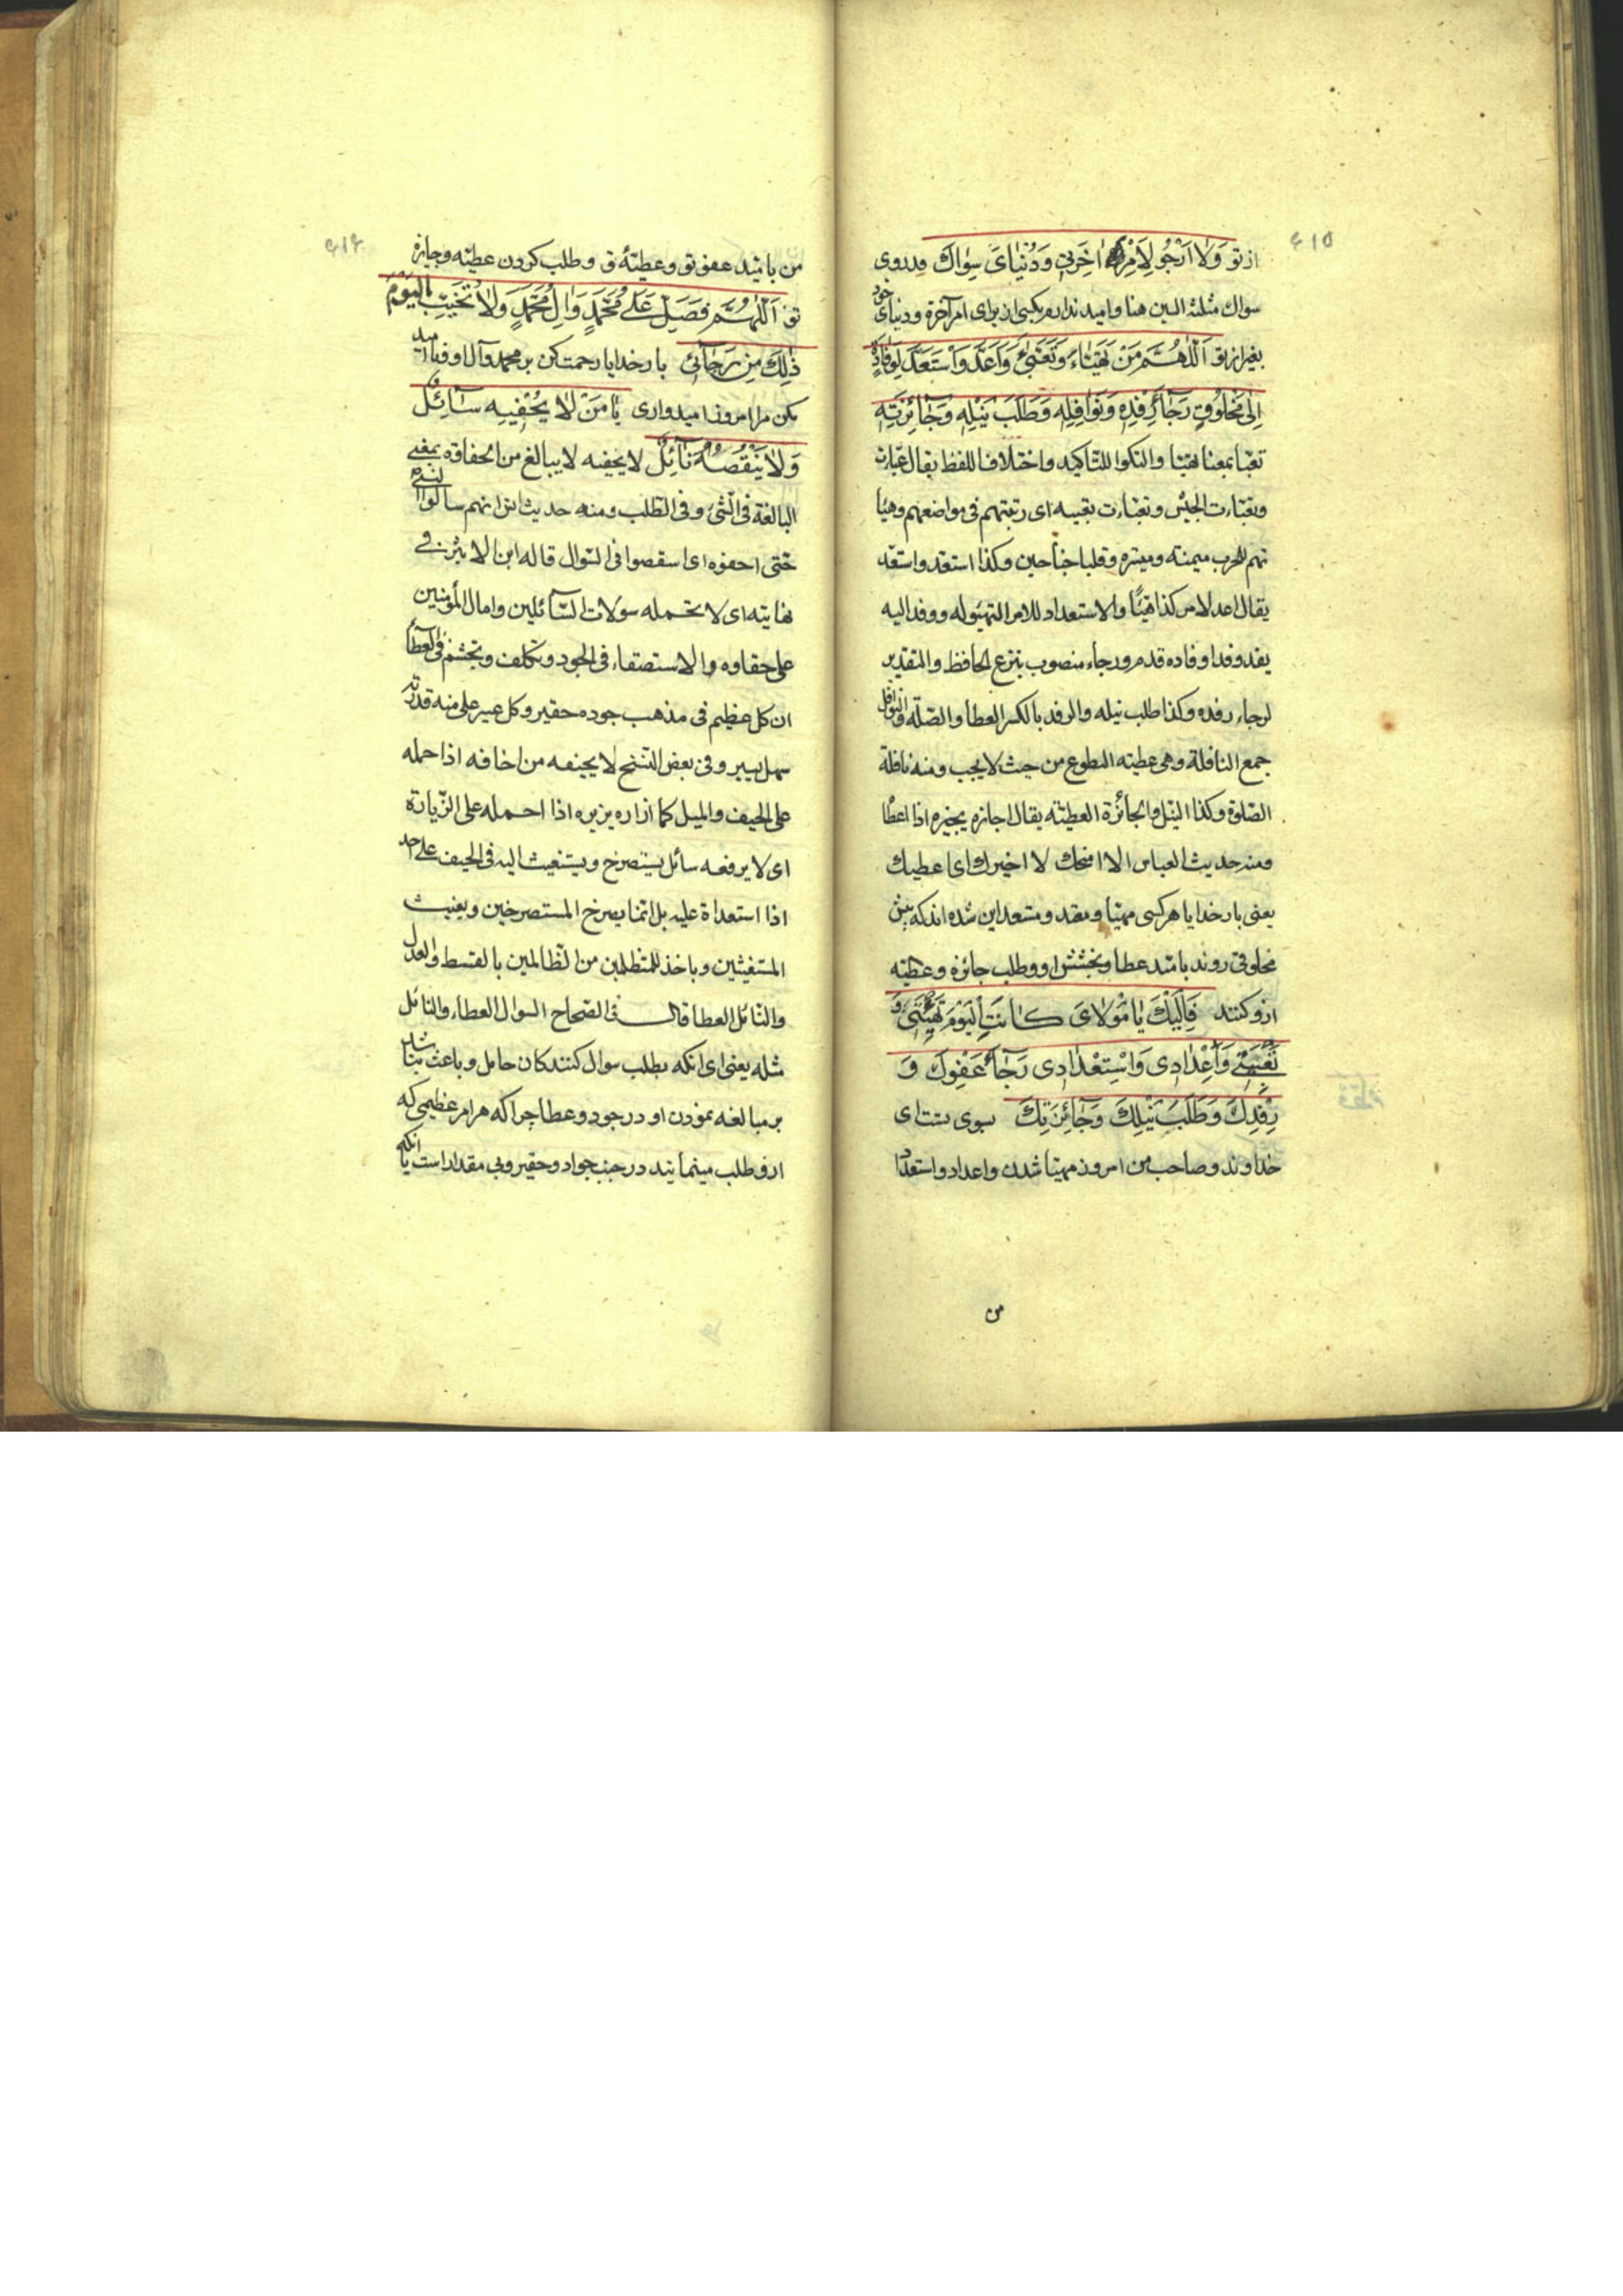 ۶۱۵
از تو وَلَا اَرْجُو لِاَمْرِ اٰخِرَتِي وَدُنْيَايَ سِوَاكَ ودر روی
سواك مثلثة السین هنا وامید ندارم بکسی از برای امر آخرة ودنیای خود
بغیر از تو اَللّٰهُمَّ مَنْ تَهَيَّاَ وَتَعَبَّيٰ وَاَعَدَّ وَاسْتَعَدَّ لِوِفَادَةٍ
اِلٰى مَخْلُوقٍ رَجَاءَ رِفْدِهِ وَنَوَافِلِهِ وَطَلَبَ نَيْلِهِ وَجَائِزَتِهِ
تعبّا بمعنا تهیّا والتکرار للتاکید واختلاف اللفظ یقال عبّات
وتعبّات الجیش وتعبّات تعبیه ای رتبتهم فی مواضعهم وهیّا
تهم للحرب میمنه ومیسره وقلبا جناحین وکذا استعد واستعد
یقال اعد لامر کذا تهیّأ والاستعداد للامر التهیّؤ له ووفد الیه
یفد وفدا وفاده قدم ورجاء منصوب بنزع الخافظ والتقدیر
لرجاء رفده وکذا طلب نیله والرفد بالکسر العطا والصّله والنوافل
جمع النافلة وهی عطیته التطوع من حیث لا یجب ومنه نافلة
الصّلوة وکذا النیل والجائزة العطیته یقال اجازه یجیزه اذا اعطا
ومنه حدیث العباس الا امنحك لا اخیرك ای اعطیك
یعنی بار خدایا هر کسی مهیّا ومعد ومستعد این شده اند که پیش
مخلوقی روند بامید عطا وبخشش او وطلب جائزه وعطیّه
ازو کنند فَاِلَيْكَ يَا مَوْلَايَ كَانَتِ الْيَوْمَ تَهْيِئَتِي وَ
تَعْبِيَتِي وَاِعْدَادِي وَاسْتِعْدَادِي رَجَاءَ عَفْوِكَ وَ
رِفْدِكَ وَطَلَبَ نَيْلِكَ وَجَائِزَتِكَ بسوی تست ای
خداوند وصاحب من امروز مهیّا شدن واعداد واستعداد
من
۶۱۶
من بامید عفو تو وعطیّهٔ تو وطلب کردن عطیّه وجایزه
تو اَللّٰهُمَّ فَصَلِّ عَلٰى مُحَمَّدٍ وَاٰلِ مُحَمَّدٍ وَلَا تُخَيِّبِ الْيَوْمَ
ذٰلِكَ مِنْ رَجَائِي بار خدایا رحمت کن بر محمد وآل او ونا امید
مکن مرا امروز امیدواری يَا مَنْ لَا يُحْفِيهِ سَائِلٌ
وَلَا يَنْقُصُهُ نَائِلٌ لا یحفیه لا یبالغ من الحفاوة بمعنی
المبالغة فی الشئ وفی الطّلب ومنه حدیث انس انهم سالوا النبی
حتی احفوه ای استقصوا فی السّوال قاله ابن الاثیر فی
نهایته ای لا تحمله سولات السّائلین وامال المؤمنین
علی حفاوه والاستصقاء فی الجود وتکلف وتجشم فی العطا
ان کل عظیم فی مذهب جوده حقیر وکل عسیر علی منه قدرته
سهل یسیر وفی بعض النسخ لا یحیفه من اخافه اذا حمله
علی الحیف والمیل کما ازاره یزیره اذا احمله علی الزّیارة
ای لا یرفعه سائل یستصرخ ویستغیث الیه فی الحیف علی احد
اذا استعداة علیه بل انما یصرخ المستصرخین ویغیث
المستغیثین ویاخذ للمتظلمین من الظّالمین بالقسط والعدل
والنّائل العطا قال فی الصّحاح السوال العطاء والنائل
مثله یعنی ای انکه بطلب سوال کنندکان حامل وباعث نباشد
بر مبالغه نمودن او در جود وعطا چرا که هر امر عظیمی که
ازو طلب مینمایند در جنب جواد وحقیر وبی مقدار است یا انکه